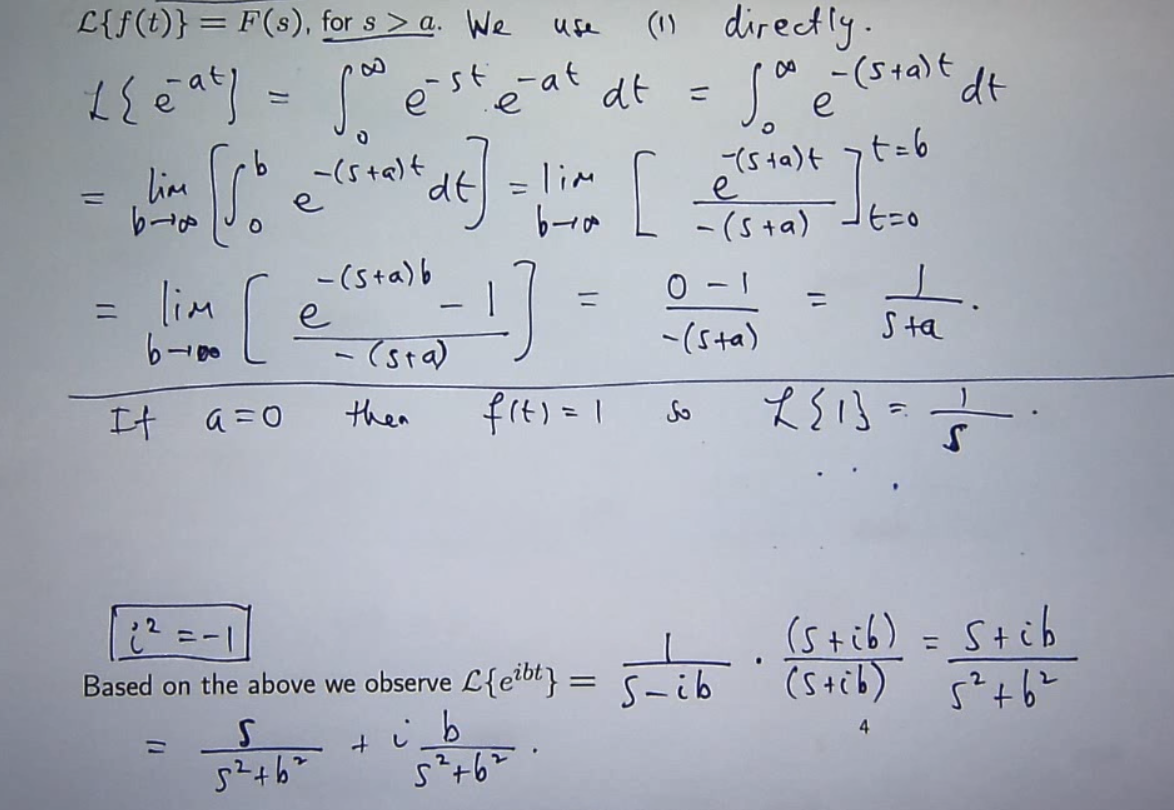 ℒ{f(t)} = F(s), for s > a. We use (1) directly.
ℒ{e^{-at}} = ∫_0^∞ e^{-st} e^{-at} dt = ∫_0^∞ e^{-(s+a)t} dt
= lim_{b→∞} [∫_0^b e^{-(s+a)t} dt] = lim_{b→∞} [e^{-(s+a)t} / -(s+a)]_{t=0}^{t=b}
= lim_{b→∞} [(e^{-(s+a)b} - 1) / -(s+a)] = (0 - 1) / -(s+a) = 1 / (s+a).
If a=0 then f(t) = 1 so ℒ{1} = 1/s.
i² = -1
Based on the above we observe ℒ{e^{ibt}} = 1/(s-ib) · (s+ib)/(s+ib) = (s+ib)/(s²+b²)
4
= s/(s²+b²) + i b/(s²+b²).